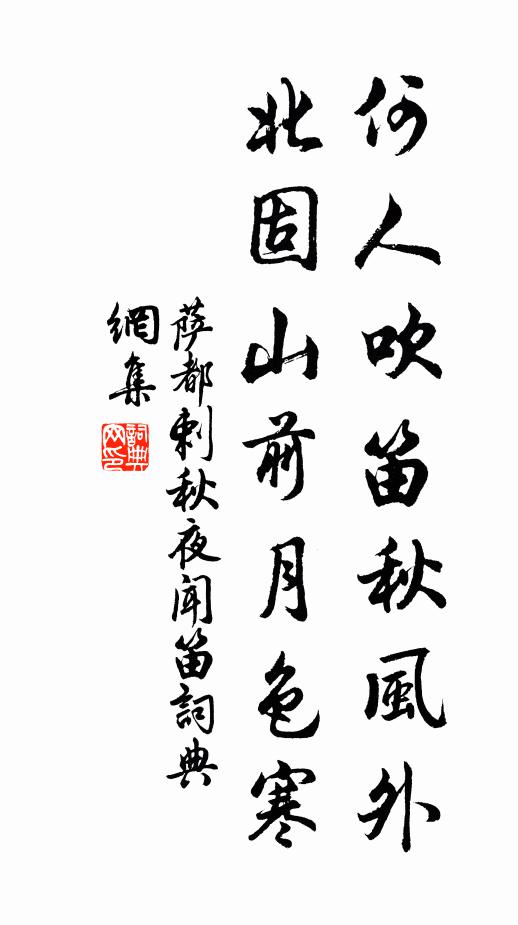 何人吹笛秋風外
北固山前月色寒
萨都剌秋夜闻笛詞典
網集
詞典
网印